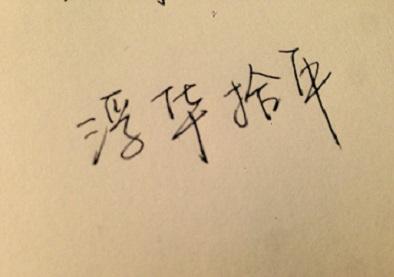 浮华拾年